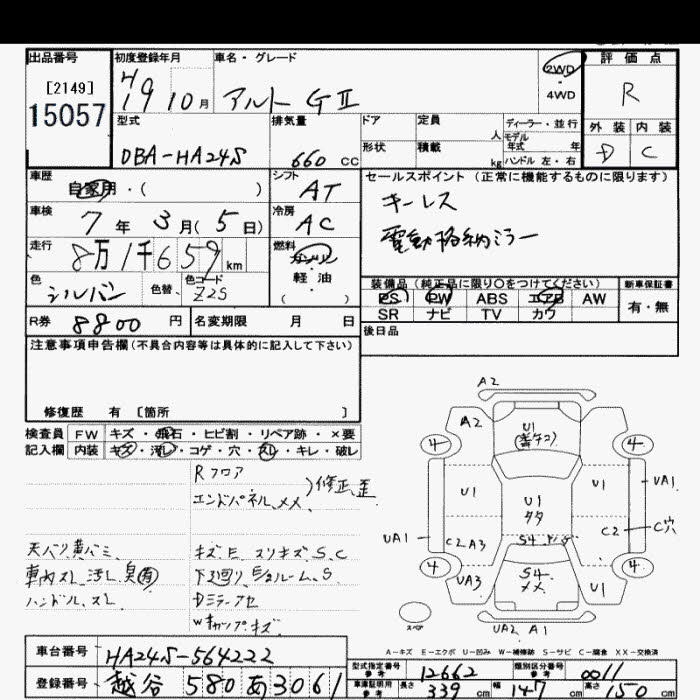 出品番号 初度登録年月 車名・グレード 2WD 評価点
[2149] H19 10月 アルト GⅡ ・ R
15057 4WD
型式 排気量 ドア 定員 ディーラー・並行 外装 内装
DBA-HA24S 660 CC 人 モデル年式 年 D C
形状 積載 kg ハンドル 左・右
車歴 シフト セールスポイント (正常に機能するものに限ります)
自家用・( ) AT キーレス
車検 冷房 電動格納ミラー
7年 3月(5日) AC
走行 燃料
8万1千659km ガソリン
・
軽油
( )
色 色替 色コード 装備品 (純正品に限り○をつけてください) 新車保証書
シルバー Z2S PS PW ABS エアB AW 有・無
SR ナビ TV カワ
R券 8800円 名変期限 月 日 後日品
注意事項申告欄(不具合内容等は具体的に記入して下さい)
修復歴 有 [箇所 ]
検査員 FW キズ・飛石・ヒビ割・リペア跡・×要
記入欄 内装 キズ・汚レ・コゲ・穴・スレ・キレ・破レ
Rフロア
エンドパネル、メメ 修正、歪
天バリ黄バミ、 キズ、E、スリキズ、S、C
車内スレ、汚レ、臭有 下廻り、Eルーム、S
ハンドル、スレ Dミラーアセ
Wキャップ、キズ
A2
A2 U1
4 4
U1 U1 U1 UA1
タタ
UA1 C2 A3 S4 C2 C穴
4 UA3 S4 メメ U1 4
スペア
UA2 A1
A-キズ E-エクボ U-凹み W-補修跡 S-サビ C-腐食 XX-交換済
車台番号 HA24S-564222
型式指定番号 参考 12662 類別区分番号 参考 0011
登録番号 越谷 580 あ 3061
車庫証明用 参考 長さ 339 cm 幅 147 cm 高さ 150 cm